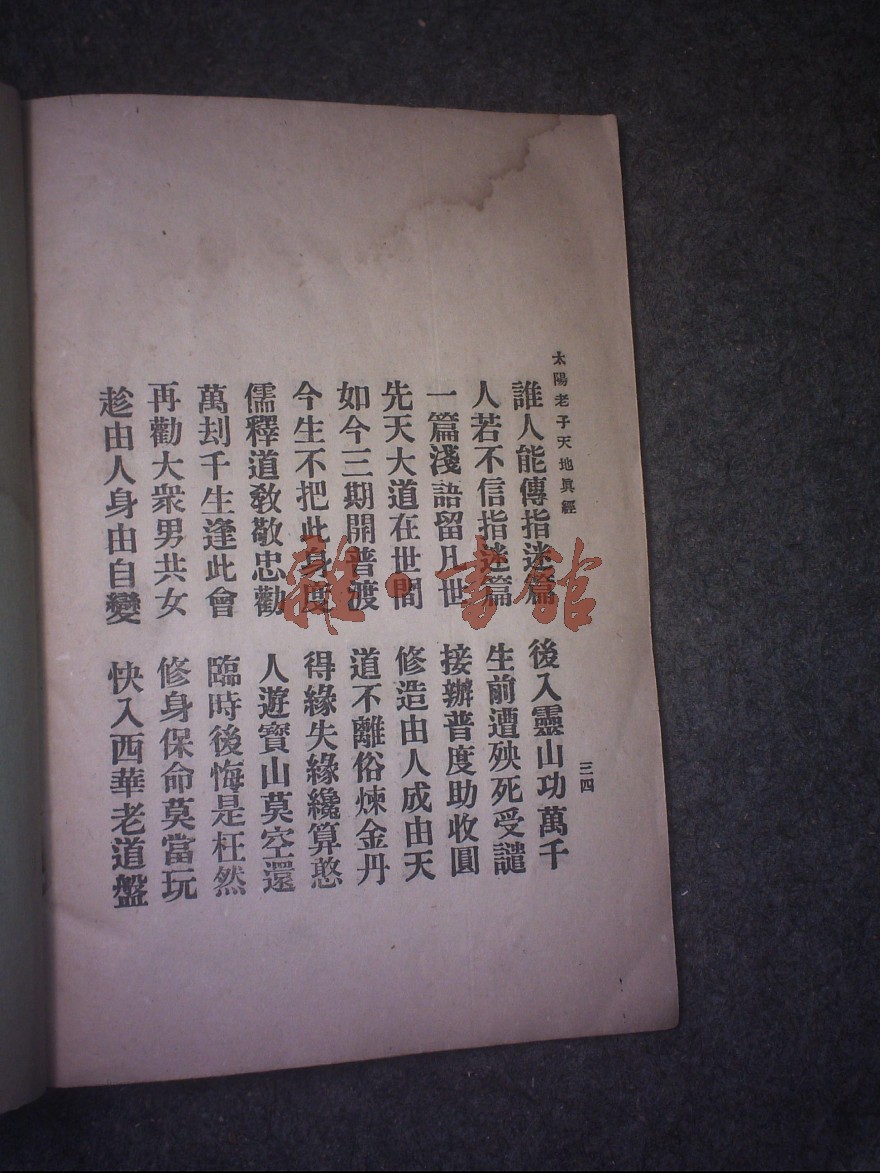 太陽老子天地眞經
三四
誰人能傳指迷篇　後入靈山功萬千
人若不信指迷篇　生前遭殃死受譴
一篇淺語留凡世　接辦普度助收圓
先天大道在世間　修造由人成由天
如今三期開普渡　道不離俗煉金丹
今生不把此身度　得緣失緣纔算憨
儒釋道教敬忠勸　人遊寶山莫空還
萬刦千生逢此會　臨時後悔是枉然
再勸大衆男共女　修身保命莫當玩
趁由人身由自變　快入西華老道盤
雜·書館